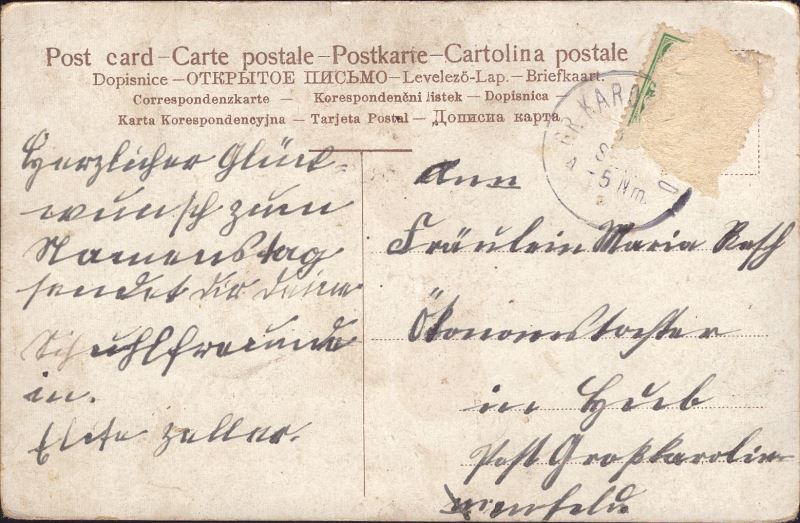 Post card – Carte postale – Postkarte – Cartolina postale
Dopisnice – ОТКРЫТОЕ ПИСЬМО – Levelező-Lap. – Briefkaart.
Correspondenzkarte – Korespondenčni listek – Dopisnica –
Karta Korespondencyjna – Tarjeta Postal – Дописна карта
GR.KARO
5 Nm.
Herzlicher Glück-
wunsch zum
Namenstag
sendet dir deine
Schuhlfreundin
in.
Zeller.
Ann
Fräulein Maria Resch
Ökonomstochter
in Hueb
Post Großkarolin-
enfeld